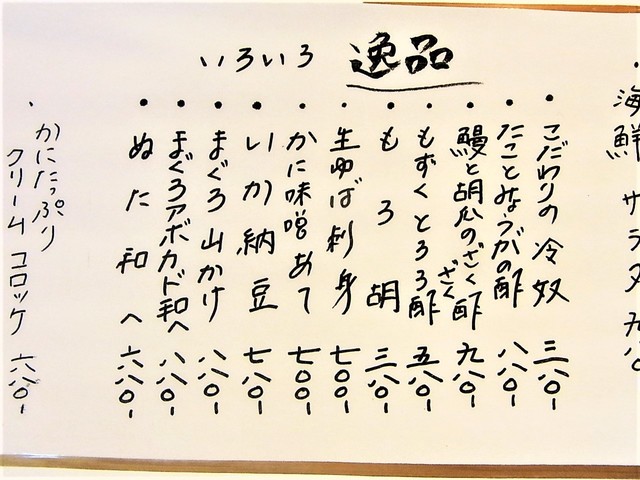 海鮮サラダ 九八〇
いろいろ 逸品
こだわりの冷奴 三八〇-
たことみょうがの酢 八八〇-
鰻と胡瓜のざくざく酢 九八〇-
もずくとろろ酢 五八〇-
もろ胡 三八〇-
生ゆば刺身 七〇〇-
かに味噌あて 七〇〇-
いか納豆 七八〇-
まぐろ山かけ 八八〇-
まぐろアボカド和へ 八八〇-
ぬた和へ 六八〇-
かにたっぷり
クリームコロッケ 六八〇-